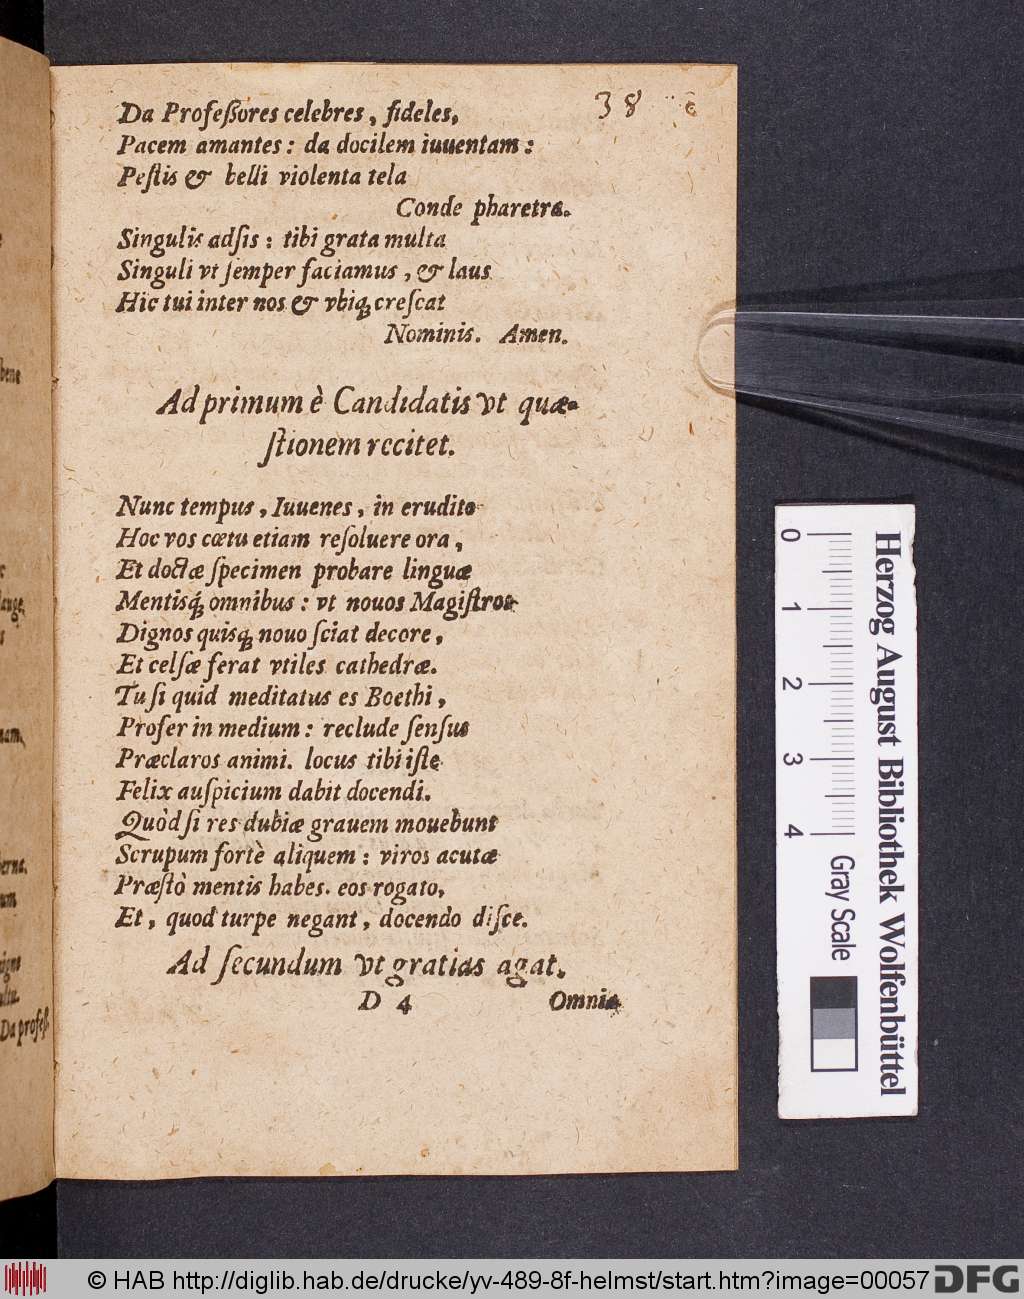 38
Da Profeßores celebres, fideles,
Pacem amantes: da docilem iuuentam:
Peſtis & belli violenta tela
Conde pharetra.
Singulis adſis: tibi grata multa
Singuli vt ſemper faciamus, & laus
Hic tui inter nos & vbiq; creſcat
Nominis. Amen.
Ad primum è Candidatis vt quæ-
ſtionem recitet.
Nunc tempus, Iuuenes, in erudito
Hoc vos cœtu etiam reſoluere ora,
Et doctæ ſpecimen probare linguæ
Mentisq́; omnibus: vt nouos Magiſtros
Dignos quisq; nouo ſciat decore,
Et celſæ ferat vtiles cathedræ.
Tu ſi quid meditatus es Boethi,
Profer in medium: reclude ſenſus
Præclaros animi. locus tibi iſte
Felix auſpicium dabit docendi.
Quòd ſi res dubiæ grauem mouebunt
Scrupum fortè aliquem: viros acutæ
Præſtò mentis habes. eos rogato,
Et, quod turpe negant, docendo diſce.
Ad ſecundum vt gratias agat.
D 4 Omnia
bene
lauge,
nam,
Da profeß.
Herzog August Bibliothek Wolfenbüttel
0 1 2 3 4 Gray Scale
© HAB http://diglib.hab.de/drucke/yv-489-8f-helmst/start.htm?image=00057 DFG